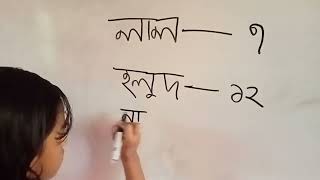 লাল — ৭
হলুদ — ১২
না